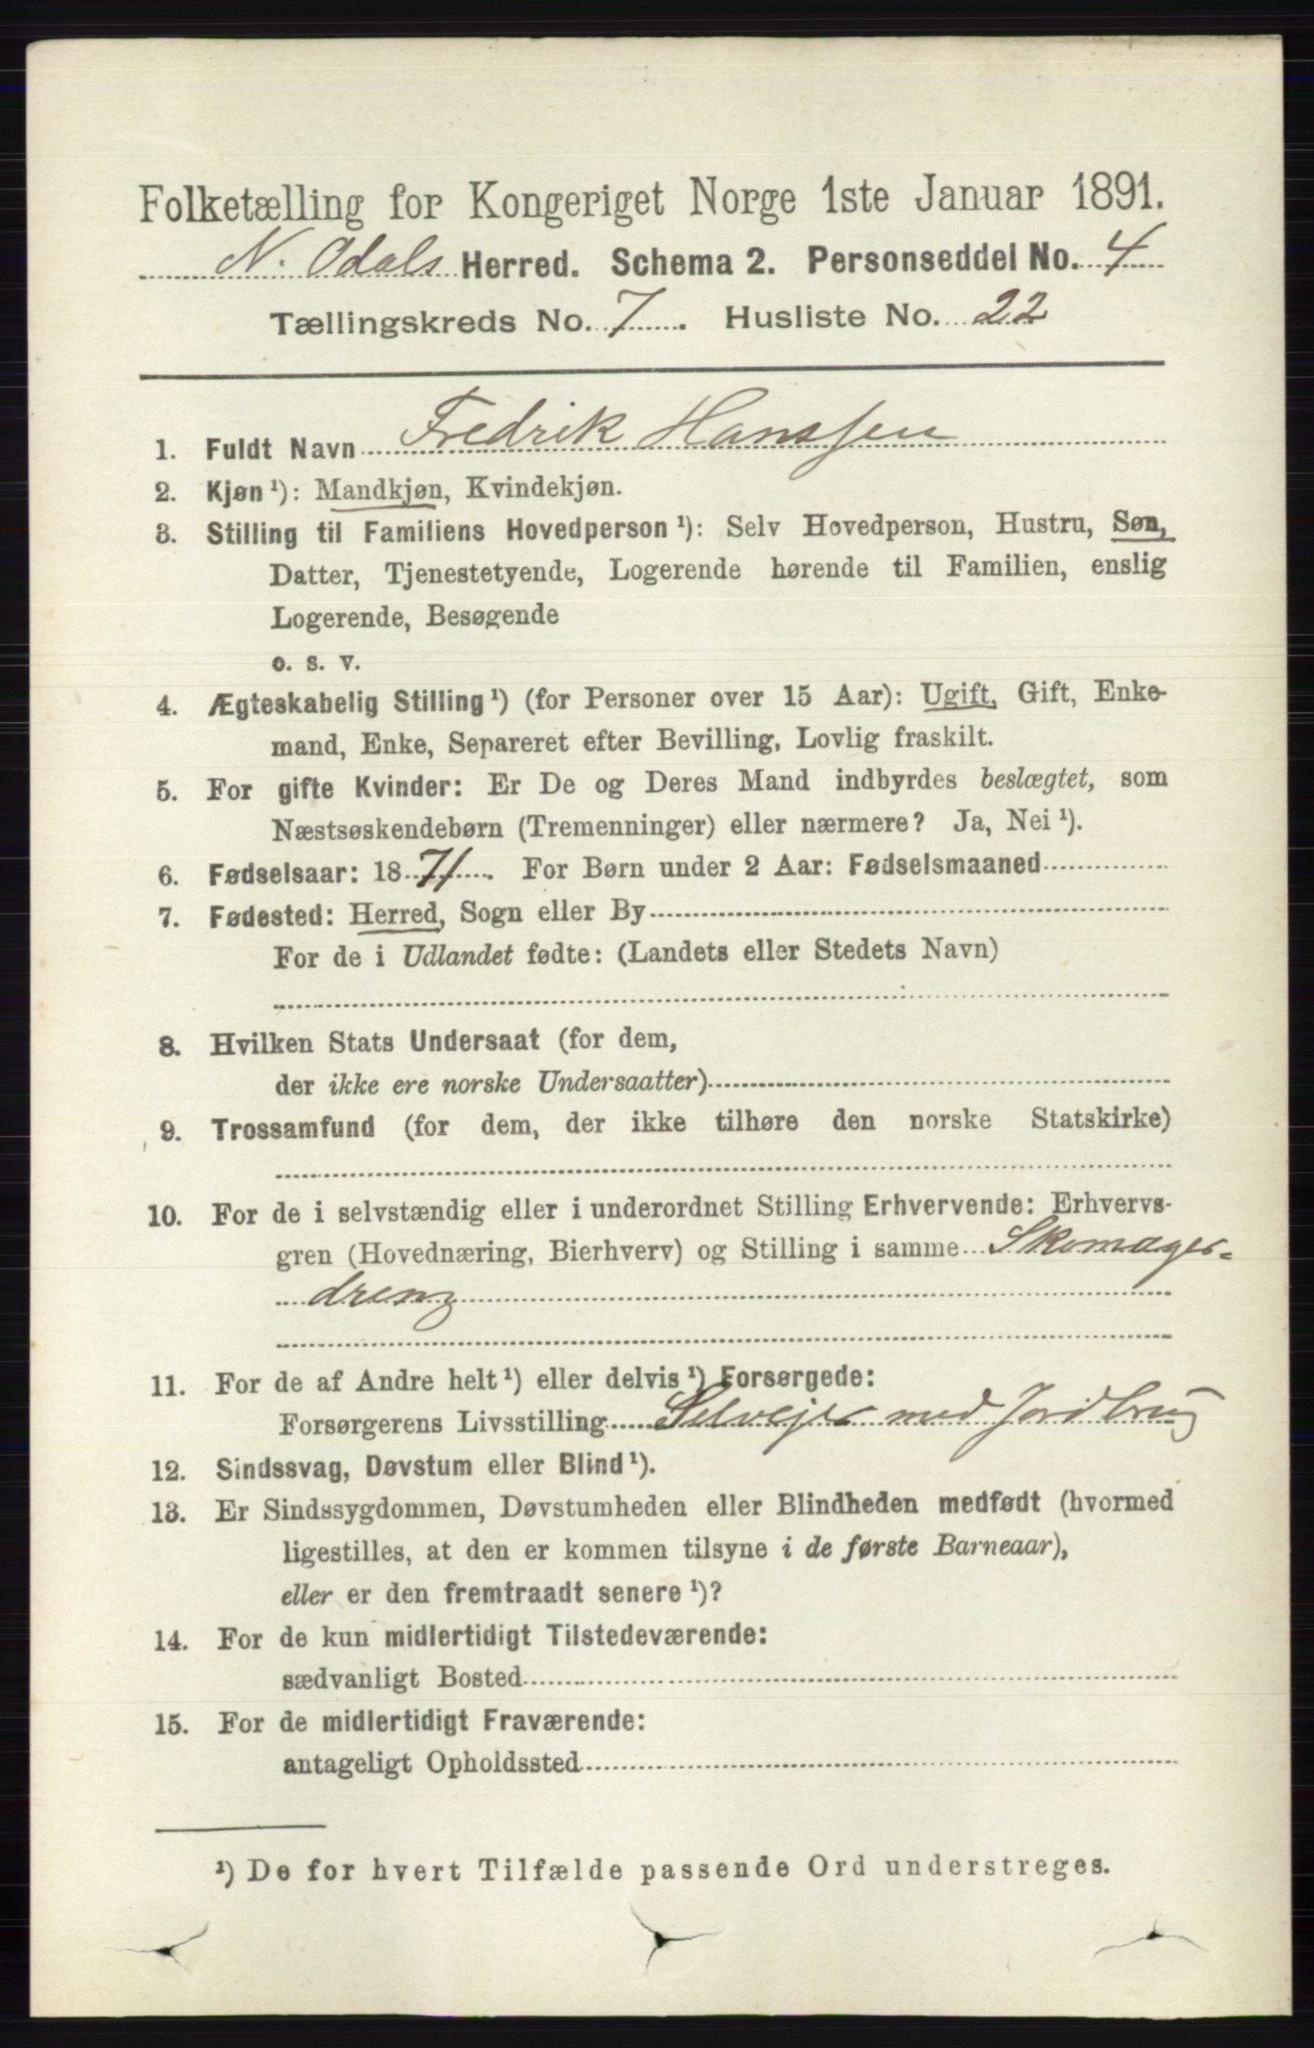 Folketælling for Kongeriget Norge 1ste Januar 1891.
N. Odals Herred. Schema 2. Personseddel No. 4
Tællingskreds No. 7. Husliste No. 22
1. Fuldt Navn Fredrik Hanssen
2. Kjøn¹): Mandkjøn, Kvindekjøn.
3. Stilling til Familiens Hovedperson¹): Selv Hovedperson, Hustru, Søn,
Datter, Tjenestetyende, Logerende hørende til Familien, enslig
Logerende, Besøgende
o. s. v.
4. Ægteskabelig Stilling¹) (for Personer over 15 Aar): Ugift, Gift, Enke-
mand, Enke, Separeret efter Bevilling, Lovlig fraskilt.
5. For gifte Kvinder: Er De og Deres Mand indbyrdes beslægtet, som
Næstsøskendebørn (Tremenninger) eller nærmere? Ja, Nei¹).
6. Fødselsaar: 1871. For Børn under 2 Aar: Fødselsmaaned
7. Fødested: Herred, Sogn eller By
For de i Udlandet fødte: (Landets eller Stedets Navn)
8. Hvilken Stats Undersaat (for dem,
der ikke ere norske Undersaatter)
9. Trossamfund (for dem, der ikke tilhøre den norske Statskirke)
10. For de i selvstændig eller i underordnet Stilling Erhvervende: Erhvervs-
gren (Hovednæring, Bierhverv) og Stilling i samme Skomager-
dreng
11. For de af Andre helt¹) eller delvis¹) Forsørgede:
Forsørgerens Livsstilling Selvejer med Jordbrug
12. Sindssvag, Døvstum eller Blind¹).
13. Er Sindssygdommen, Døvstumheden eller Blindheden medfødt (hvormed
ligestilles, at den er kommen tilsyne i de første Barneaar),
eller er den fremtraadt senere¹)?
14. For de kun midlertidigt Tilstedeværende:
sædvanligt Bosted
15. For de midlertidigt Fraværende:
antageligt Opholdssted
¹) De for hvert Tilfælde passende Ord understreges.